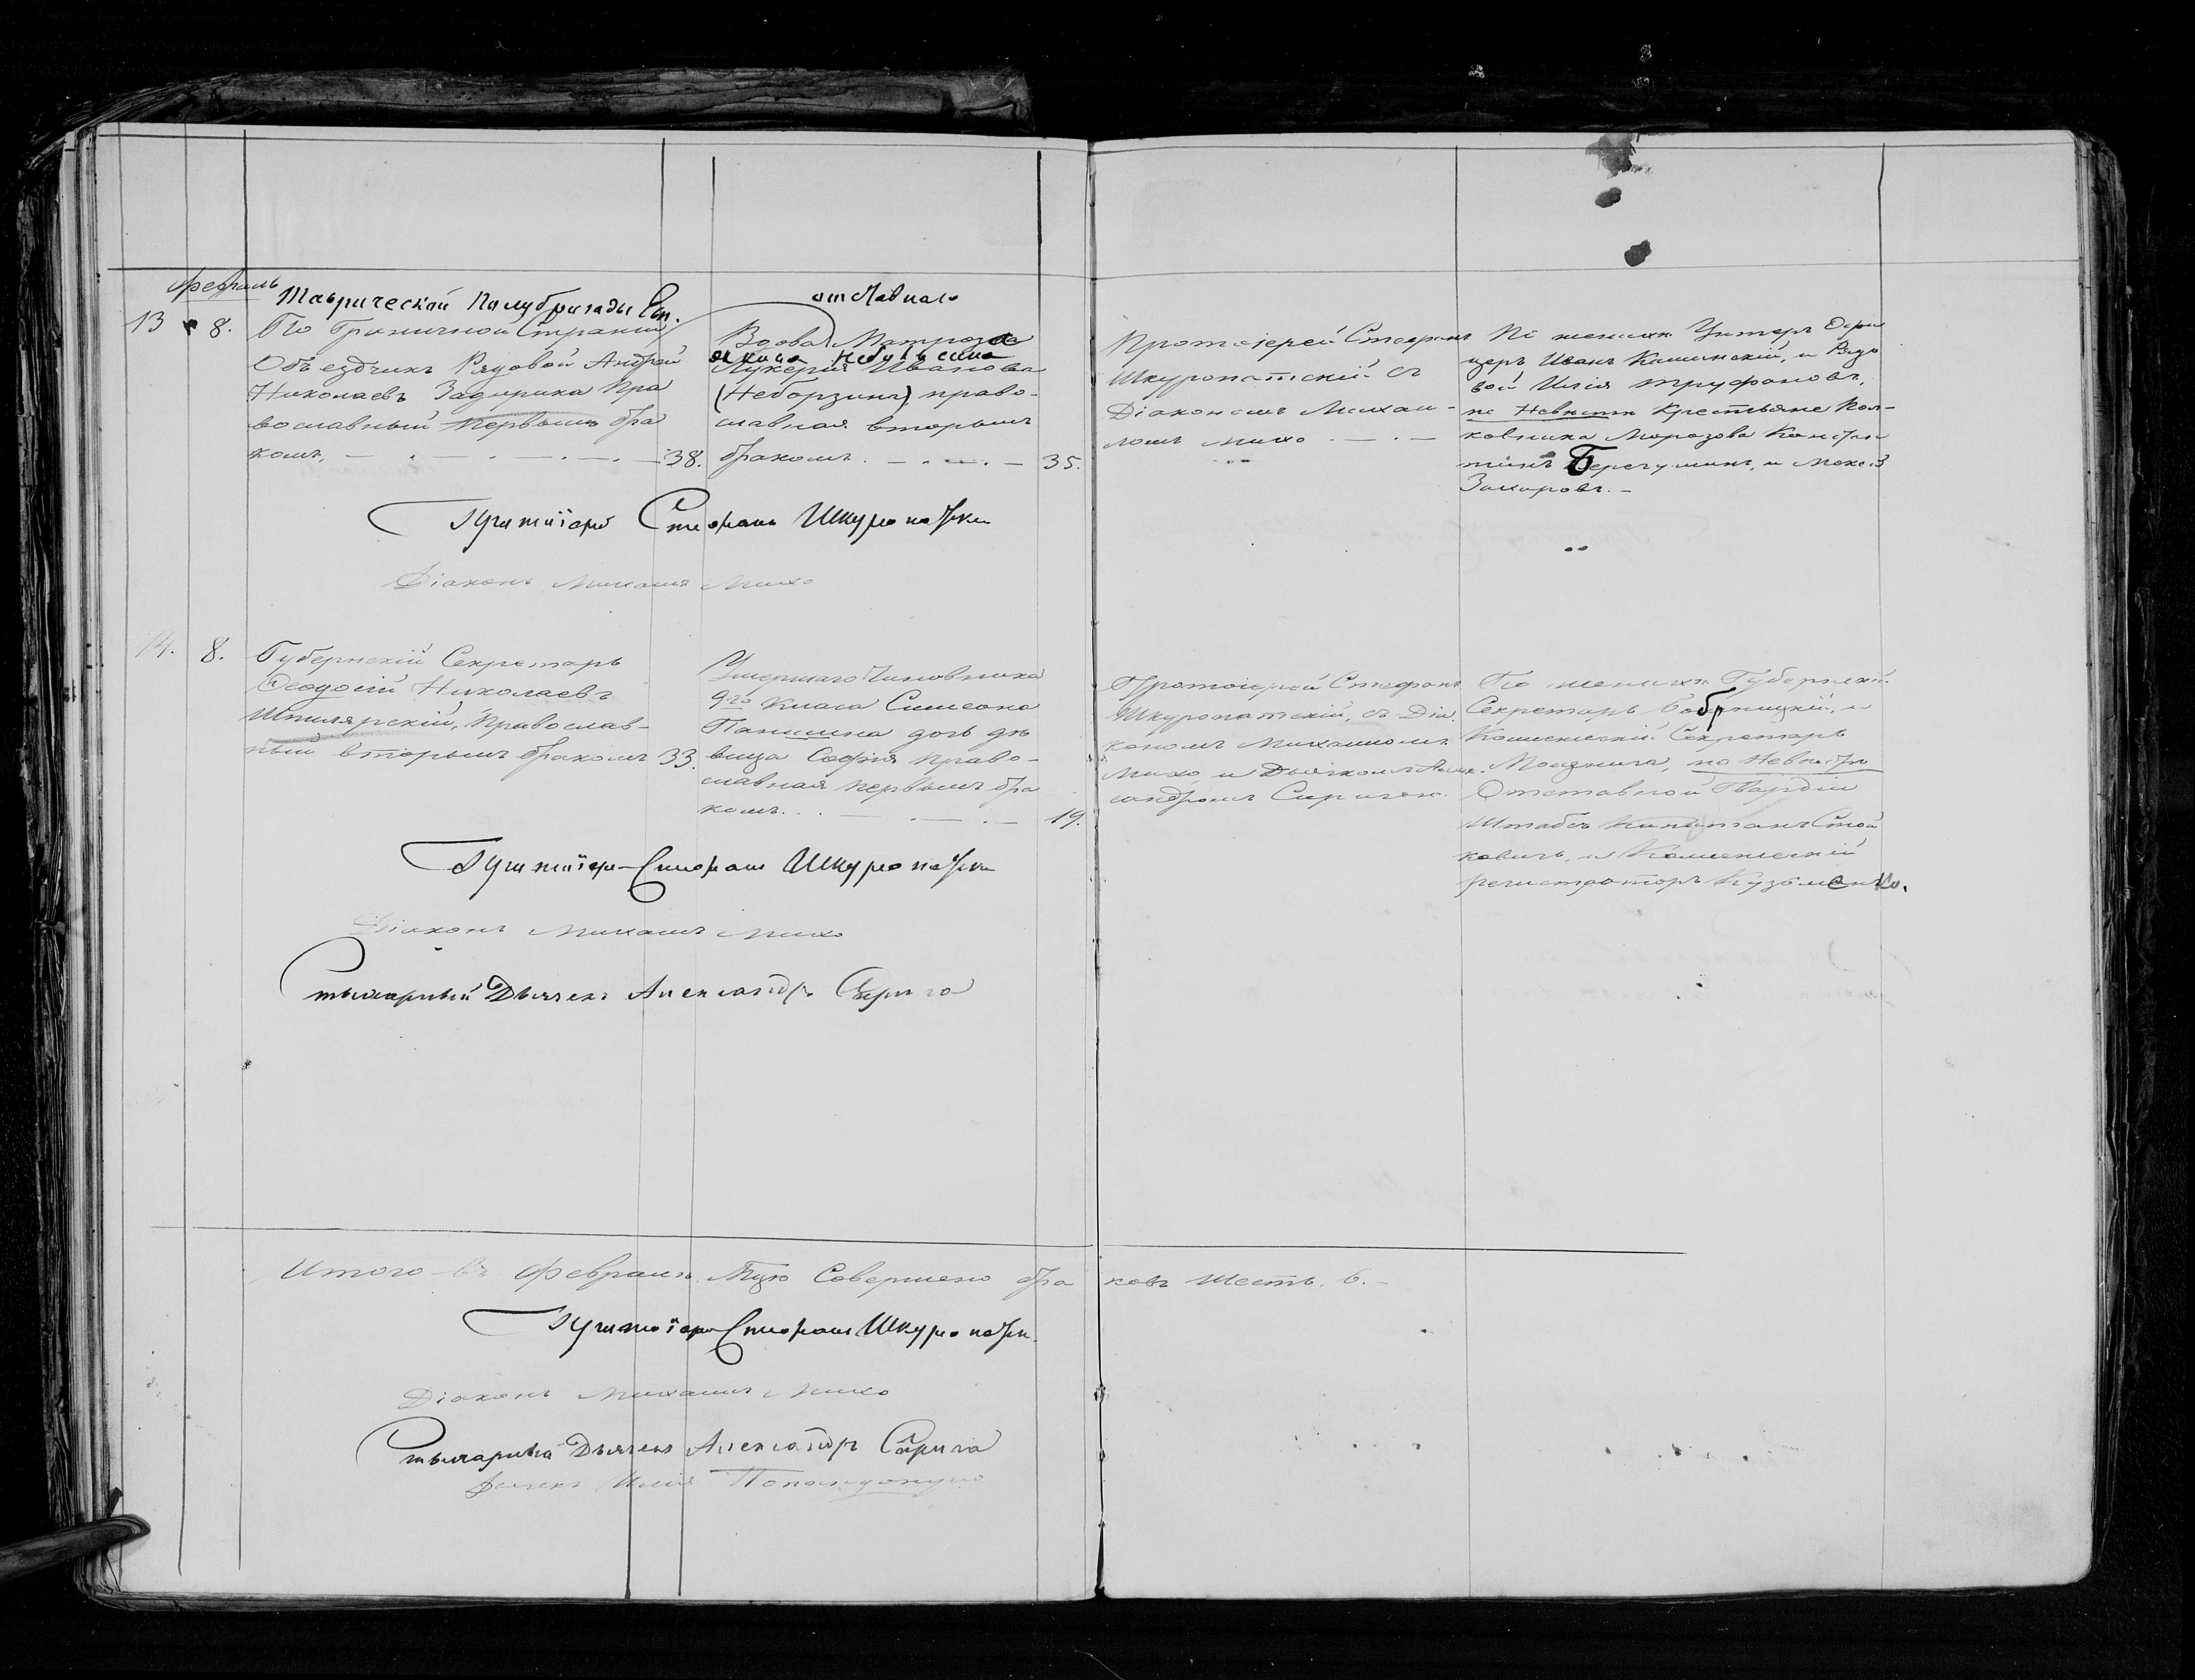 Февраль
13
8.
Таврической Полубригады
По граничной Стражи
Объездчикъ Рядовой Андрей
Николаевъ Задирика Пра
вославный первымъ бра
комъ,
38.
отставнаго
Вдова Матроза
Лукерия Иванова
(Неборзина) право-
славная вторымъ
бракомъ.
35.
Протоіерей Стефанъ
Шкуропатскій съ
Діакономъ Михаи-
ломъ Михо
По женихѣ Унтеръ Офи
церъ Иванъ Каминскій, и Рядо
вой Илія Труфановъ,
по Невѣстѣ Крестьяне Пол-
ковника Морозова Констан
тинъ и
Захаровъ.-
Протоіерей Стефанъ Шкуропатскій
Діаконъ Михаилъ Михо
14.
8.
Губернскій Секретарь
Феодосій Николаевъ
Шпилярскій, Православ-
ный вторымъ бракомъ
33.
Умершаго Чиновника
9го Класа Симеона
Папшина дочь дѣ
вица Софія право-
славная первымъ бра
комъ.
19.
Протоіерей Стефанъ
Шкуропатскій, съ Діа
кономъ Михаиломъ
Михо, и Дьячкомъ Алек
сандромъ
По женихѣ Губернскій
Секретарь и
Колежскій Секретарь
по Невѣстѣ
Отставной Гвардіи
Штабсъ Капитанъ Стой
ковичъ, и Колежскій
регистраторъ Кузоменко.
Протоіерей Стефанъ Шкуропатскій
Діаконъ Михаилъ Михо
Стихарный Дьячекъ Александръ Сарига
Итого въ Февралѣ Мцѣ Совершено бра
ковъ шесть. 6.-
Протоіерей Стефанъ Шкуропатскій
Діаконъ Михаилъ Михо
Стихарный Дьячекъ Александръ Сарига
Дьячекъ Илія